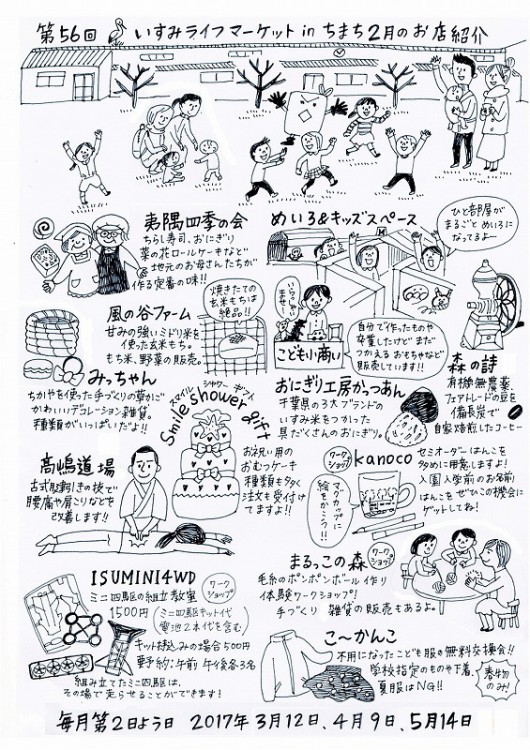 第56回 いすみライフマーケット in ちまち 2月のお店紹介
夷隅四季の会
ちらし寿司、おにぎり
菜の花ロールケーキなど
地元のお母さんたちが
作る定番の味!!
めいろ&キッズスペース
ひと部屋が
まるごと めいろに
なってるよー
いらっしゃい
ませー
こども小商い
自分で作ったものや
卒業したけど まだ
つかえる おもちゃなど
販売しています!!
風の谷ファーム
甘みの強いミドリ米を
使った玄米もち。
もち米、野菜の販売。
焼きたての
玄米もちは
絶品!!
森の詩
有機無農薬
フェアトレードの豆を
備長炭で
自家焙煎したコーヒー
みっちゃん
ちがやも使った手づくりの草かごや
かわいいデコレーション雑貨。
種類がいっぱいだよ!!
スマイル シャワー ギフト
Smile shower gift
お祝い用の
おむつケーキ
種類も多く
注文も受付け
てますよ!!
おにぎり工房かっつあん
千葉県の3大ブランドの
いすみ米をつかった
具だくさんのおにぎり。
高嶋道場
古式肚割きの技で
腰痛や肩こりなどを
改善します!!
ワークショップ
kanoco
マグカップに
絵をかこう!!
セミオーダーはんこを
多めに用意しますよ!
入園入学前のお名前
はんこを ぜひこの機会に
ゲットしてね!
ISUMINI4WD
ワークショップ
ミニ四駆の組立教室
1500円(ミニ四駆キット代
電池2本代を含む)
キット持込みの場合500円
要予約:午前 午後各3名
組み立てたミニ四駆は、
その場で走らせることができます!
まるっこの森
ワークショップ
毛糸のポンポンボール作り
体験ワークショップ!
手づくり 雑貨の販売もあるよ。
こ〜かんこ
不用になったこども服の無料交換会!!
学校指定のものや下着、
夏服はNG!!
春物
のみ!
毎月第2日よう日 2017年3月12日、4月9日、5月14日